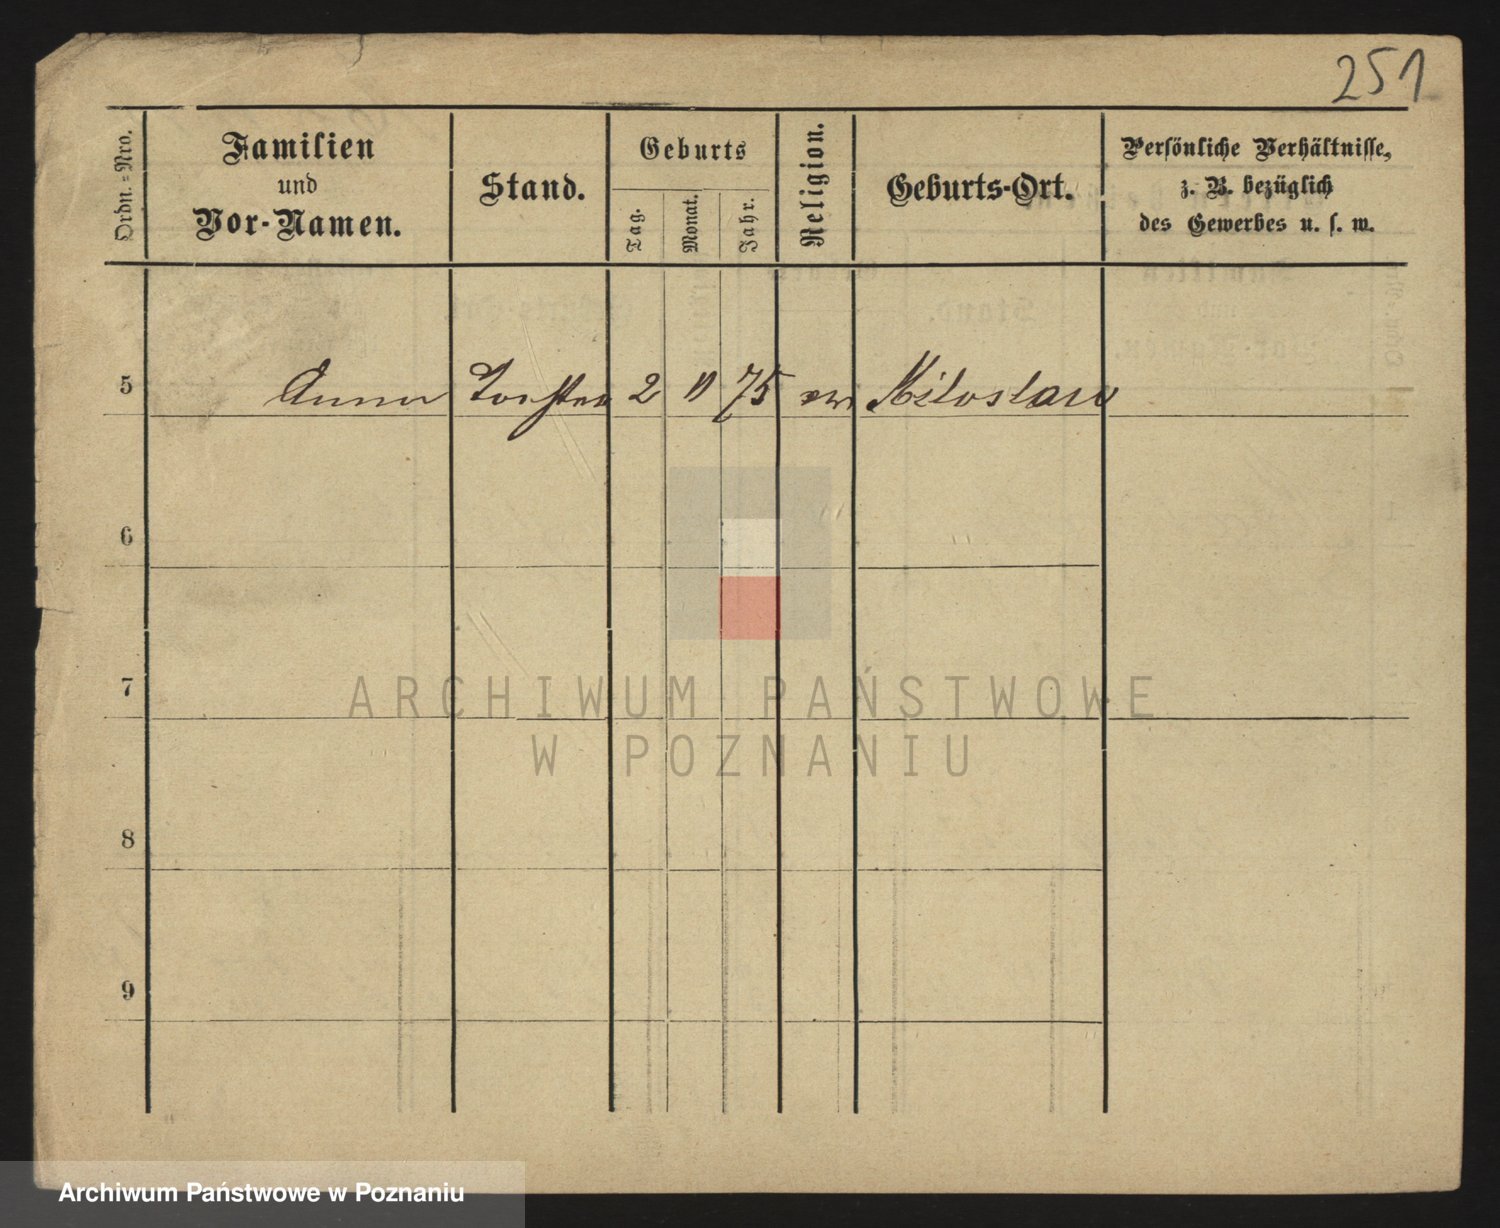 251
Ordn.-Nro.
Familien
und
Vor-Namen.
Stand.
Geburts
Tag.
Monat.
Jahr.
Religion.
Geburts-Ort.
Persönliche Verhältnisse,
z. B. bezüglich
des Gewerbes u. s. w.
5 Anna Tochter 2 11 75 Miloslaw
6
7
8
9
ARCHIWUM PAŃSTWOWE
W POZNANIU
Archiwum Państwowe w Poznaniu